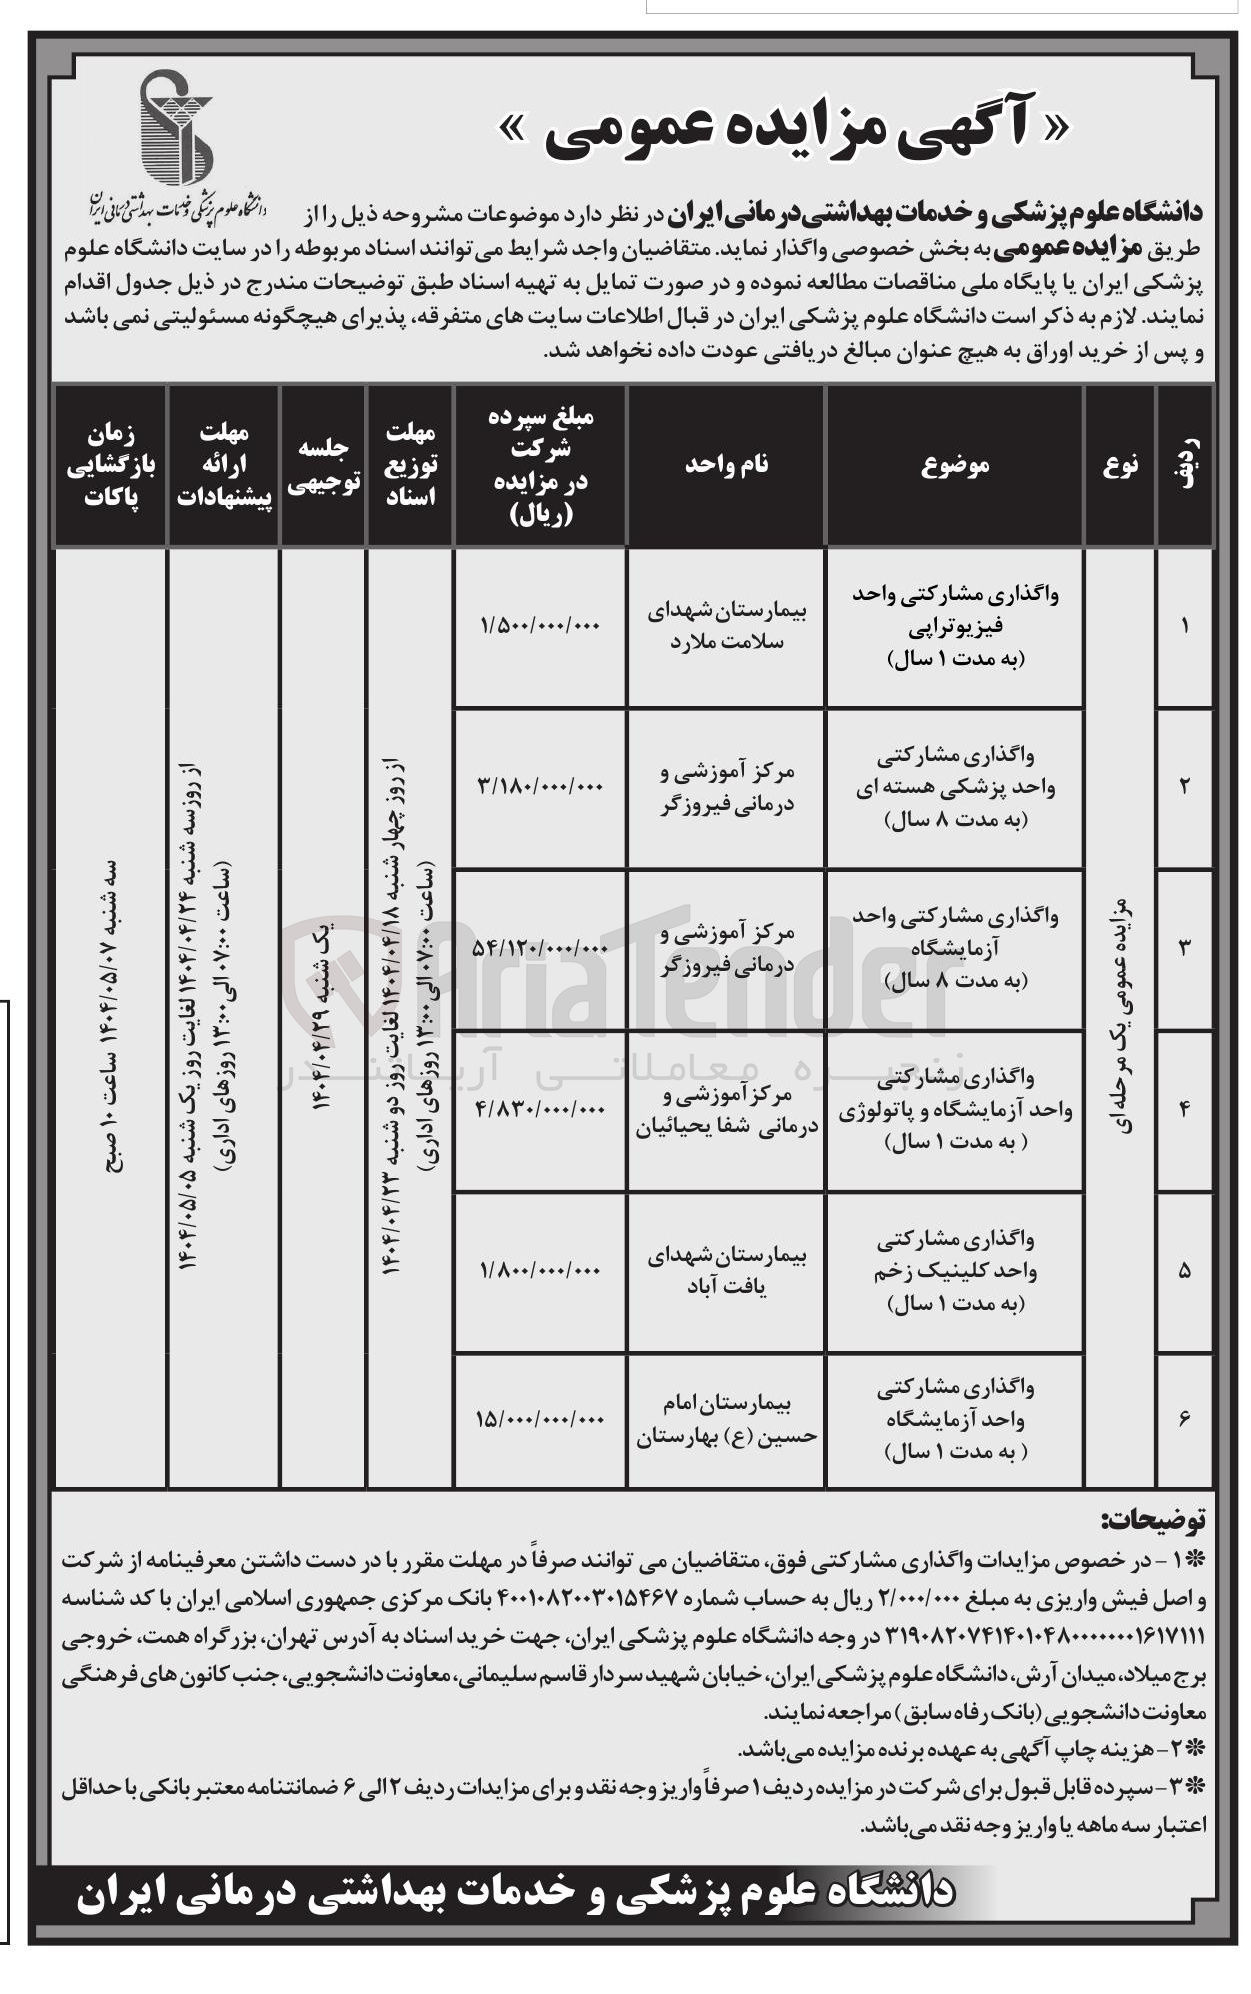 « آگهی مزایده عمومی »
دانشگاه علوم پزشکی و خدمات بهداشتی درمانی ایران
دانشگاه علوم پزشکی و خدمات بهداشتی درمانی ایران در نظر دارد موضوعات مشروحه ذیل را از
طریق مزایده عمومی به بخش خصوصی واگذار نماید. متقاضیان واجد شرایط می توانند اسناد مربوطه را در سایت دانشگاه علوم
پزشکی ایران یا پایگاه ملی مناقصات مطالعه نموده و در صورت تمایل به تهیه اسناد طبق توضیحات مندرج در ذیل جدول اقدام
نمایند. لازم به ذکر است دانشگاه علوم پزشکی ایران در قبال اطلاعات سایت های متفرقه، پذیرای هیچگونه مسئولیتی نمی باشد
و پس از خرید اوراق به هیچ عنوان مبالغ دریافتی عودت داده نخواهد شد.
ردیف
نوع
موضوع
نام واحد
مبلغ سپرده
شرکت
در مزایده
(ریال)
مهلت
توزیع
اسناد
جلسه
توجیهی
مهلت
ارائه
پیشنهادات
زمان
بازگشایی
پاکات
۱
مزایده عمومی یک مرحله ای
واگذاری مشارکتی واحد
فیزیوتراپی
(به مدت ۱ سال)
بیمارستان شهدای
سلامت ملارد
۱/۵۰۰/۰۰۰/۰۰۰
از روز چهار شنبه ۱۴۰۴/۰۴/۱۸ لغایت روز دو شنبه ۱۴۰۴/۰۴/۲۳
(ساعت ۰۷:۰۰ الی ۱۳:۰۰ روزهای اداری)
یک شنبه ۱۴۰۴/۰۴/۲۹
از روز سه شنبه ۱۴۰۴/۰۴/۲۴ لغایت روز یک شنبه ۱۴۰۴/۰۵/۰۵
(ساعت ۰۷:۰۰ الی ۱۳:۰۰ روزهای اداری)
سه شنبه ۱۴۰۴/۰۵/۰۷ ساعت ۱۰ صبح
۲
واگذاری مشارکتی
واحد پزشکی هسته ای
(به مدت ۸ سال)
مرکز آموزشی و
درمانی فیروزگر
۳/۱۸۰/۰۰۰/۰۰۰
۳
واگذاری مشارکتی واحد
آزمایشگاه
(به مدت ۸ سال)
مرکز آموزشی و
درمانی فیروزگر
۵۴/۱۲۰/۰۰۰/۰۰۰
AriaTender
زنجیره معاملاتی آریاتندر
۴
واگذاری مشارکتی
واحد آزمایشگاه و پاتولوژی
( به مدت ۱ سال)
مرکز آموزشی و
درمانی شفا یحیائیان
۴/۸۳۰/۰۰۰/۰۰۰
۵
واگذاری مشارکتی
واحد کلینیک زخم
(به مدت ۱ سال)
بیمارستان شهدای
یافت آباد
۱/۸۰۰/۰۰۰/۰۰۰
۶
واگذاری مشارکتی
واحد آزمایشگاه
( به مدت ۱ سال)
بیمارستان امام
حسین (ع) بهارستان
۱۵/۰۰۰/۰۰۰/۰۰۰
توضیحات:
❊۱ - در خصوص مزایدات واگذاری مشارکتی فوق، متقاضیان می توانند صرفاً در مهلت مقرر با در دست داشتن معرفینامه از شرکت
و اصل فیش واریزی به مبلغ ۲/۰۰۰/۰۰۰ ریال به حساب شماره ۴۰۰۱۰۸۲۰۰۳۰۱۵۴۶۷ بانک مرکزی جمهوری اسلامی ایران با کد شناسه
۳۱۹۰۸۲۰۷۴۱۴۰۱۰۴۸۰۰۰۰۰۰۰۱۶۱۷۱۱۱ در وجه دانشگاه علوم پزشکی ایران، جهت خرید اسناد به آدرس تهران، بزرگراه همت، خروجی
برج میلاد، میدان آرش، دانشگاه علوم پزشکی ایران، خیابان شهید سردار قاسم سلیمانی، معاونت دانشجویی، جنب کانون های فرهنگی
معاونت دانشجویی (بانک رفاه سابق) مراجعه نمایند.
❊۲- هزینه چاپ آگهی به عهده برنده مزایده می‌باشد.
❊۳- سپرده قابل قبول برای شرکت در مزایده ردیف ۱ صرفاً واریز وجه نقد و برای مزایدات ردیف ۲ الی ۶ ضمانتنامه معتبر بانکی با حداقل
اعتبار سه ماهه یا واریز وجه نقد می‌باشد.
دانشگاه علوم پزشکی و خدمات بهداشتی درمانی ایران